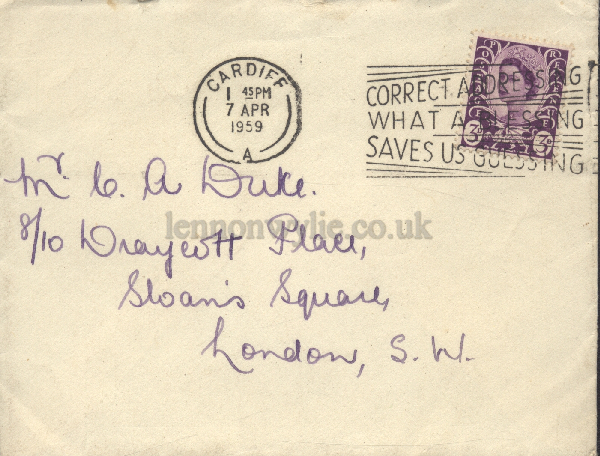 CARDIFF
1 45PM
7 APR
1959
A
CORRECT ADDRESSING
WHAT A BLESSING
SAVES US GUESSING
POSTAGE REVENUE
3D 3D
Mr C. A Duke.
8/10 Draycott Place,
Sloan's Square,
London, S. W.
lennonwylie.co.uk